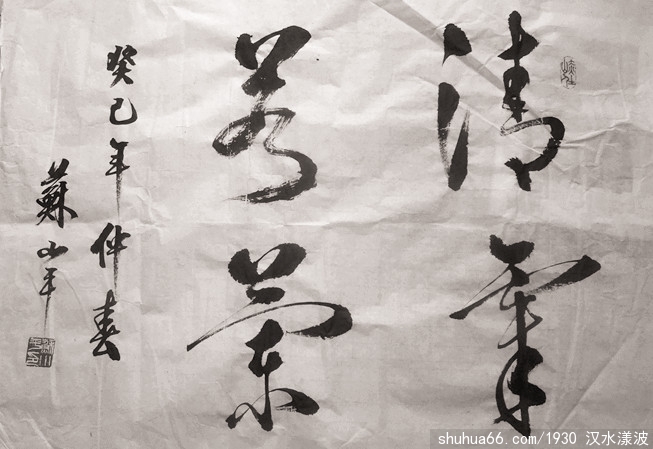 清氣
若蘭
癸巳年仲春
蘇平
shuhua66.com/1930 汉水漾波